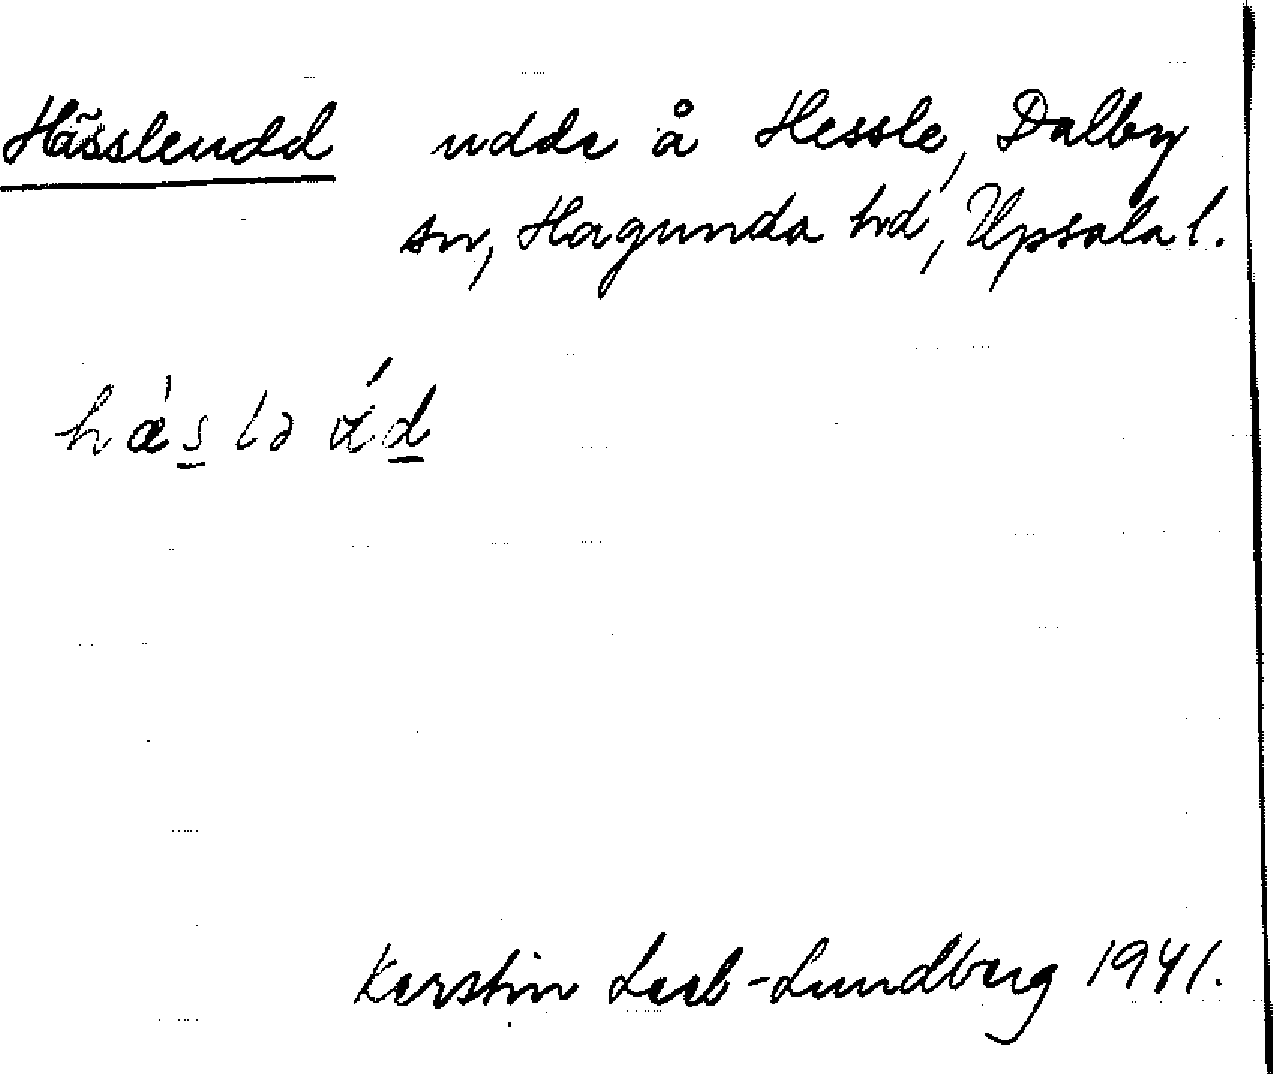 Hässleudd udde å Hessle, Dalby
sn, Hagunda hd, Upsala l.
Kerstin Leeb-Lundberg 1941.